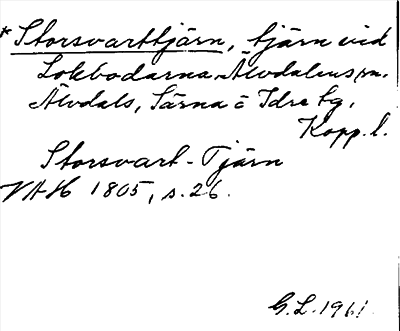 * Storsvarttjärn, tjärn vid
Lokbodarna, Älvdalens sn.
Älvdals, Särna o Idre tg.
Kopp. l.
Storsvart-Tjärn
VAH 1805, s. 26.
G.L. 1961